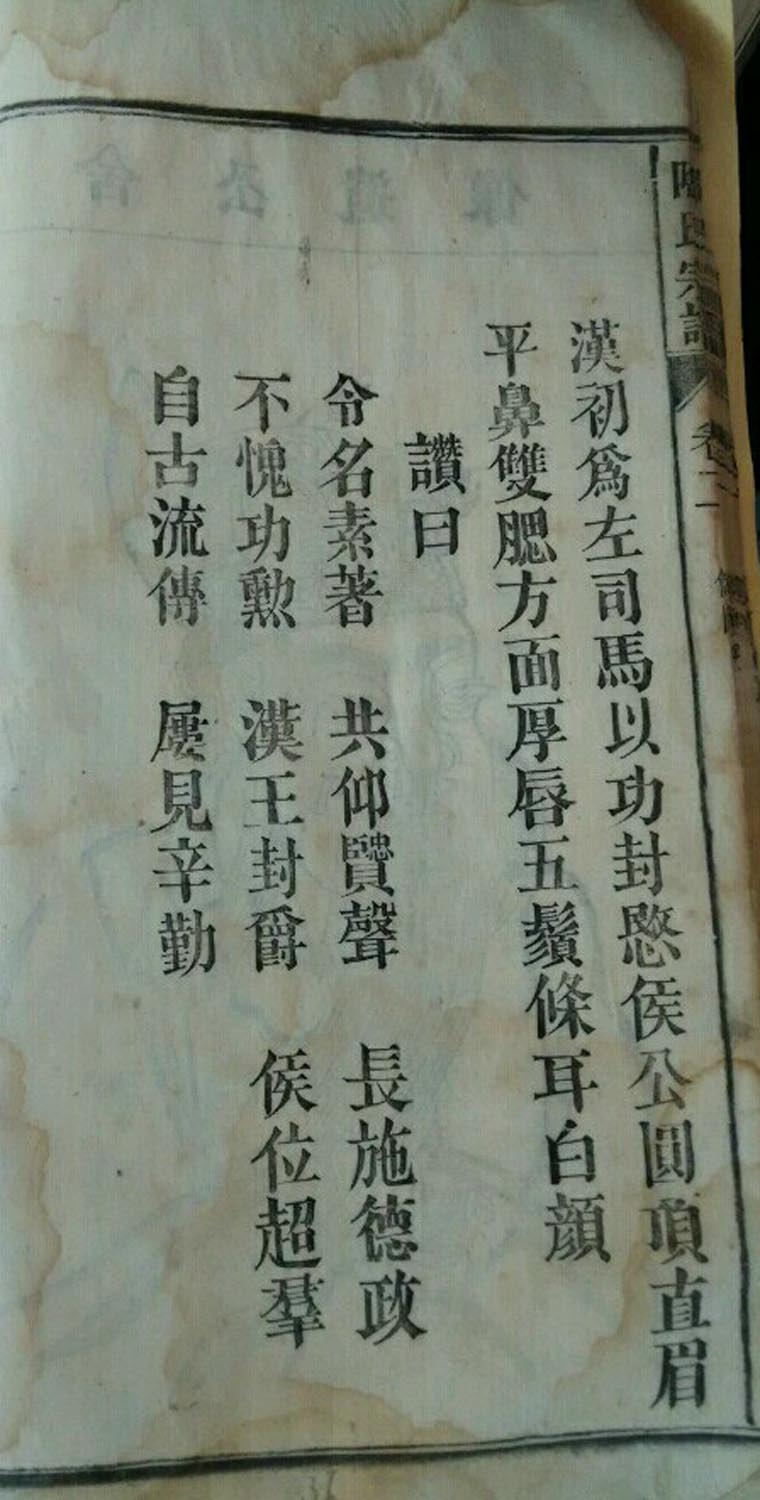 氏宗譜 卷二
漢初爲左司馬以功封愍侯公圓項直眉
平鼻雙腮方面厚唇五鬚條耳白顏
讚曰
令名素著 共仰賢聲 長施德政
不愧功勲 漢王封爵 侯位超羣
自古流傳 屢見辛勤